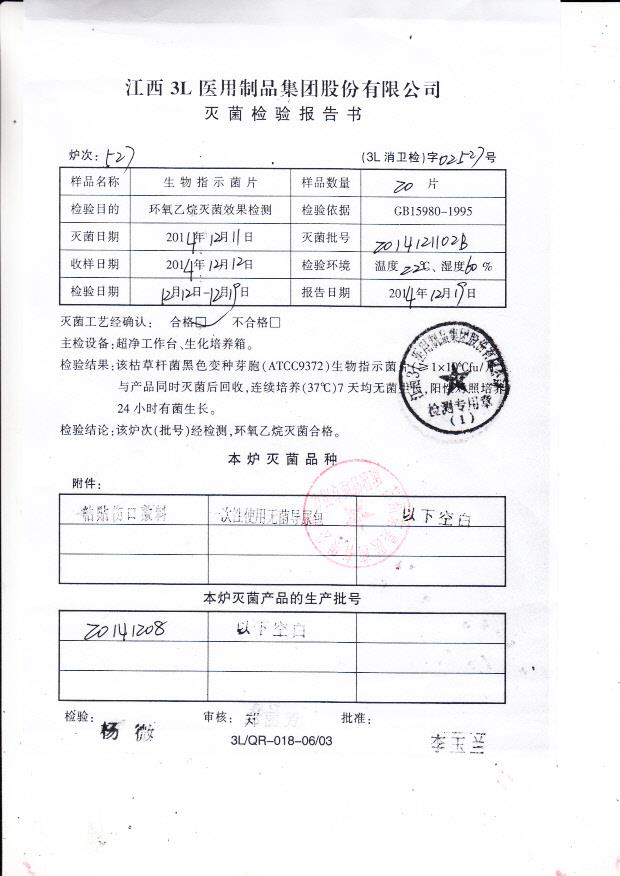 江西 3L 医用制品集团股份有限公司
灭菌检验报告书
炉次:527 (3L 消卫检)字02527号
样品名称 生物指示菌片 样品数量 20 片
检验目的 环氧乙烷灭菌效果检测 检验依据 GB15980-1995
灭菌日期 2014年12月11日 灭菌批号 2014121102B
收样日期 2014年12月12日 检验环境 温度22℃、湿度60%
检验日期 12月12日-12月19日 报告日期 2014年12月19日
灭菌工艺经确认: 合格☑ 不合格□
主检设备:超净工作台、生化培养箱。
检验结果:该枯草杆菌黑色变种芽胞(ATCC9372)生物指示菌 1×10 cfu/
与产品同时灭菌后回收,连续培养(37℃)7天均无菌 阳性对照培养
24小时有菌生长。
检验结论:该炉次(批号)经检测,环氧乙烷灭菌合格。
检测专用章
(1)
本炉灭菌品种
附件:
粘贴伤口敷料 一次性使用无菌导尿包 以下空白
本炉灭菌产品的生产批号
20141208 以下空白
检验: 杨微 审核: 郑 芳 批准: 李玉兰
3L/QR-018-06/03